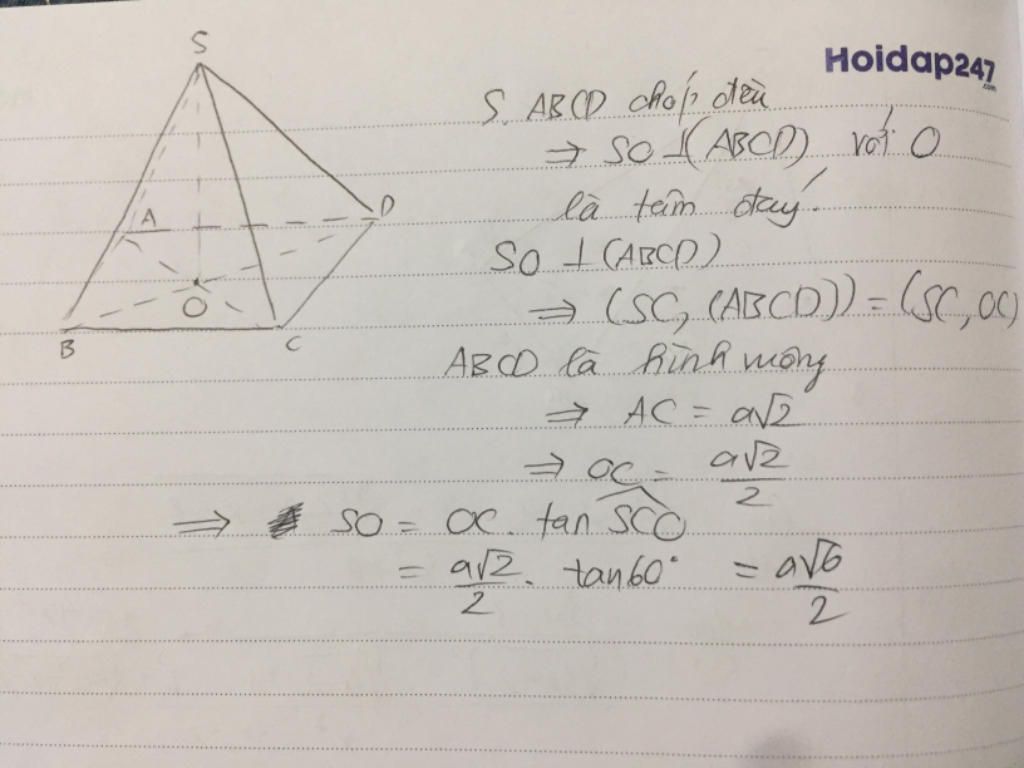 Hoidap247
.com
S
A
D
O
B
C
S. ABCD chóp đều
⇒ SO ⊥ (ABCD) với O
là tâm đáy.
SO ⊥ (ABCD)
⇒ (SC, (ABCD)) = (SC, OC)
ABCD là hình vuông
⇒ AC = a√2
⇒ OC = a√2/2
⇒ SO = OC . tan SCO
= a√2/2 . tan60° = a√6/2